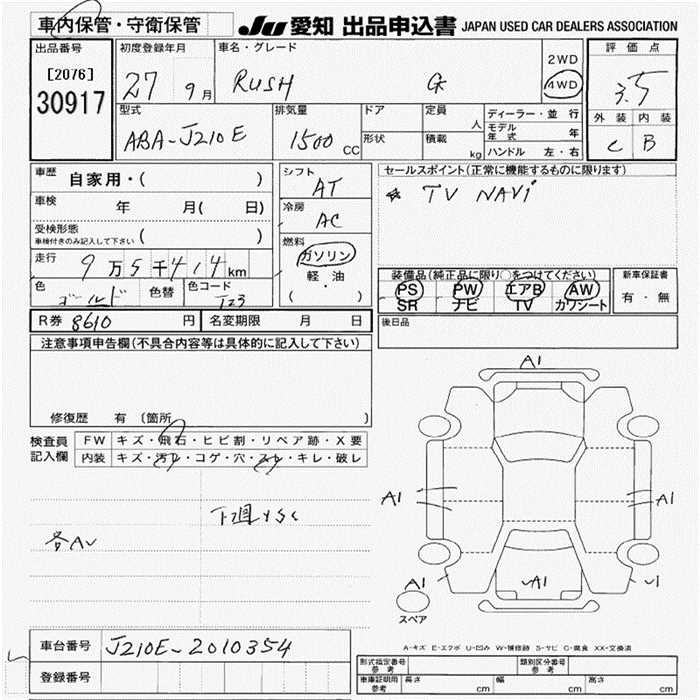 車内保管・守衛保管
JU 愛知 出品申込書 JAPAN USED CAR DEALERS ASSOCIATION
出品番号
[2076]
30917
初度登録年月
27 9月
車名・グレード
RUSH G
2WD
4WD
評価点
3.5
外装 内装
C B
型式
ABA-J210E
排気量
1500 CC
ドア
形状
定員
人
積載
kg
ディーラー・並行
モデル年式 年
ハンドル 左・右
車歴
自家用・( )
車検
年 月( 日)
受検形態
車検付きのみ記入して下さい ( )
走行
9万5千414km
色
ゴールド
色替
色コード
T23
シフト
AT
冷房
AC
燃料
ガソリン
軽・油
( )
セールスポイント(正常に機能するものに限ります)
TV NAVi
装備品(純正品に限り○をつけてください)
PS PW エアB AW
SR ナビ TV カワシート
新車保証書
有・無
R券 8610 円
名変期限 月 日
後日品
注意事項申告欄(不具合内容等は具体的に記入して下さい)
修復歴 有 [箇所 ]
検査員記入欄
FW キズ・飛石・ヒビ割・リペア跡・X要
内装 キズ・汚レ・コゲ・穴・スレ・キレ・破レ
各AU
A1
A1
A1
A1
A1
スペア
A-キズ E-エクボ U-凹み W-補修跡 S-サビ C-腐食 XX-交換済
車台番号
J210E-2010354
登録番号
形式指定番号 参考
類別区分番号 参考
車庫証明用 参考
長さ cm
幅 cm
高さ cm